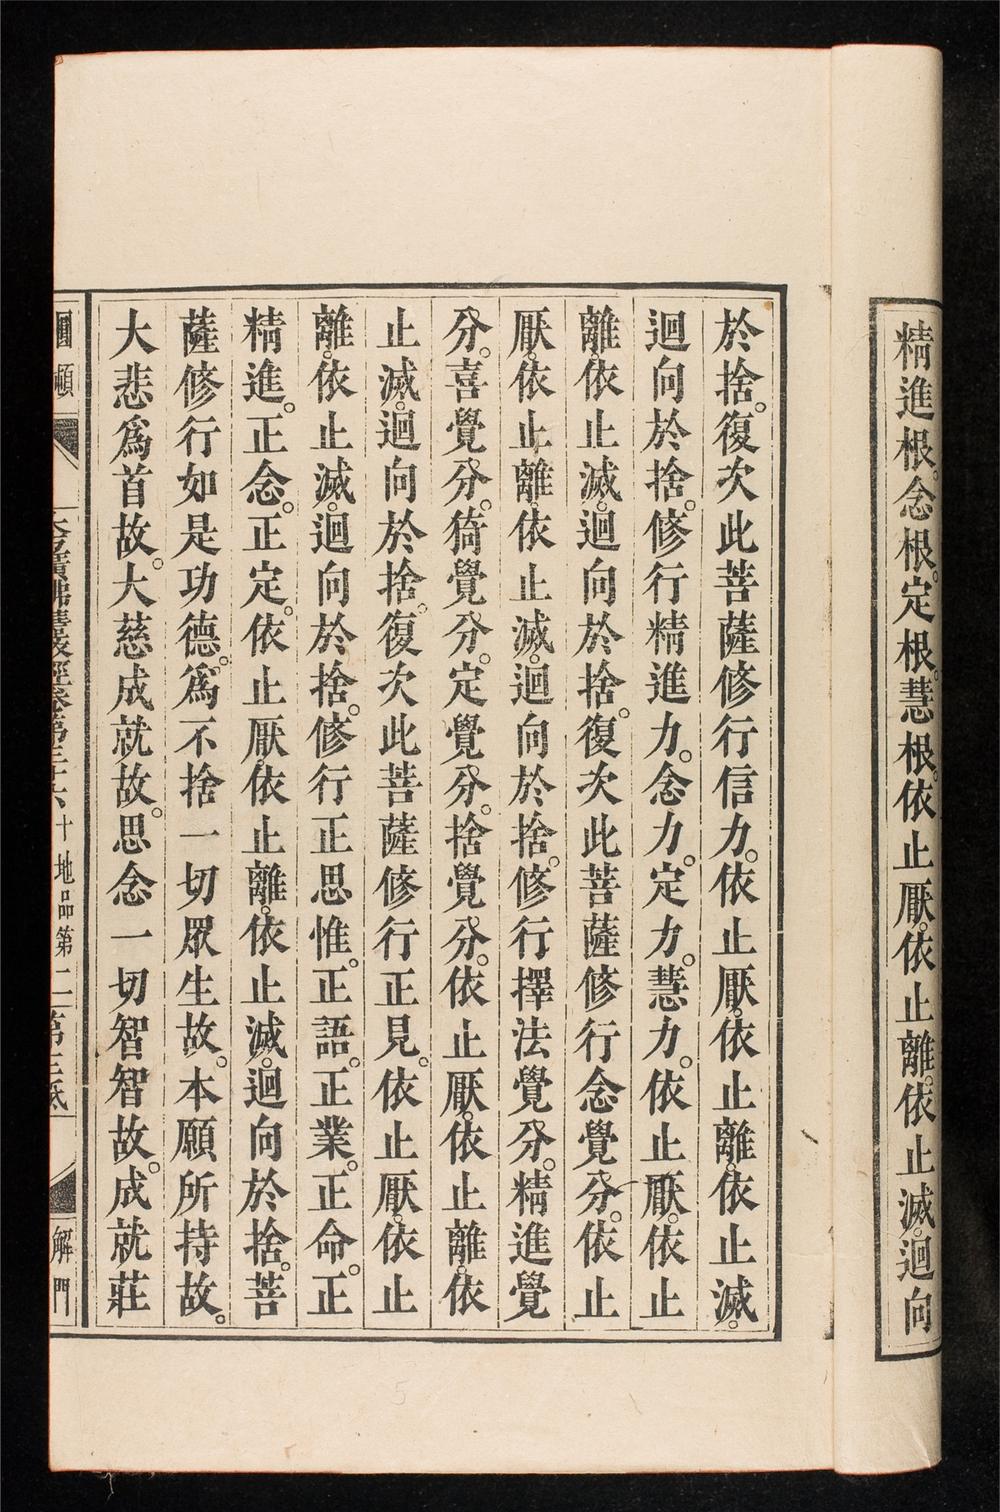 精進根。念根。定根。慧根。依止厭。依止離。依止滅。迴向
於捨。復次此菩薩修行信力。依止厭。依止離。依止滅。
迴向於捨。修行精進力。念力。定力。慧力。依止厭。依止
離。依止滅。迴向於捨。復次此菩薩修行念覺分。依止
厭。依止離。依止滅。迴向於捨。修行擇法覺分。精進覺
分。喜覺分。猗覺分。定覺分。捨覺分。依止厭。依止離。依
止滅。迴向於捨。復次此菩薩修行正見。依止厭。依止
離。依止滅。迴向於捨。修行正思惟。正語。正業。正命。正
精進。正念。正定。依止厭。依止離。依止滅。迴向於捨。菩
薩修行如是功德。為不捨一切眾生故。本願所持故。
大悲為首故。大慈成就故。思念一切智智故。成就莊
圓頓
方廣佛華嚴經卷第三十六 十地品第二 第三紙
解門